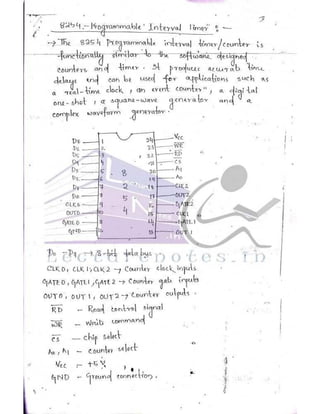 8254 - Programmable Interval Timer :-
→ The 8254 Programmable interval timer/counter is
functionally similar to the software designed
counters and timer. It produces accurate time
delays and can be used for applications such as
a real-time clock, an event counter, a digital
one-shot, a square-wave generator and a
complex waveform generator.
D7 1 24 Vcc
D6 2 23 WR
D5 3 22 RD
D4 4 21 CS
D3 5 20 A1
D2 6 19 A0
D1 7 18 CLK 2
D0 8 17 OUT2
CLK0 9 16 GATE2
OUT0 10 15 CLK1
GATE0 11 14 GATE1
GND 12 13 OUT 1
8
2
5
4
Lecturenotes.in
D0 - D7 → 8-bit data bus
CLK0, CLK1, CLK2 → Counter clock inputs
GATE0, GATE1, GATE2 → Counter gate inputs
OUT0, OUT1, OUT2 → Counter outputs
RD - Read control signal
WR - Write command
CS - chip select
A0, A1 - counter select
Vcc - +5V
GND - Ground connection.